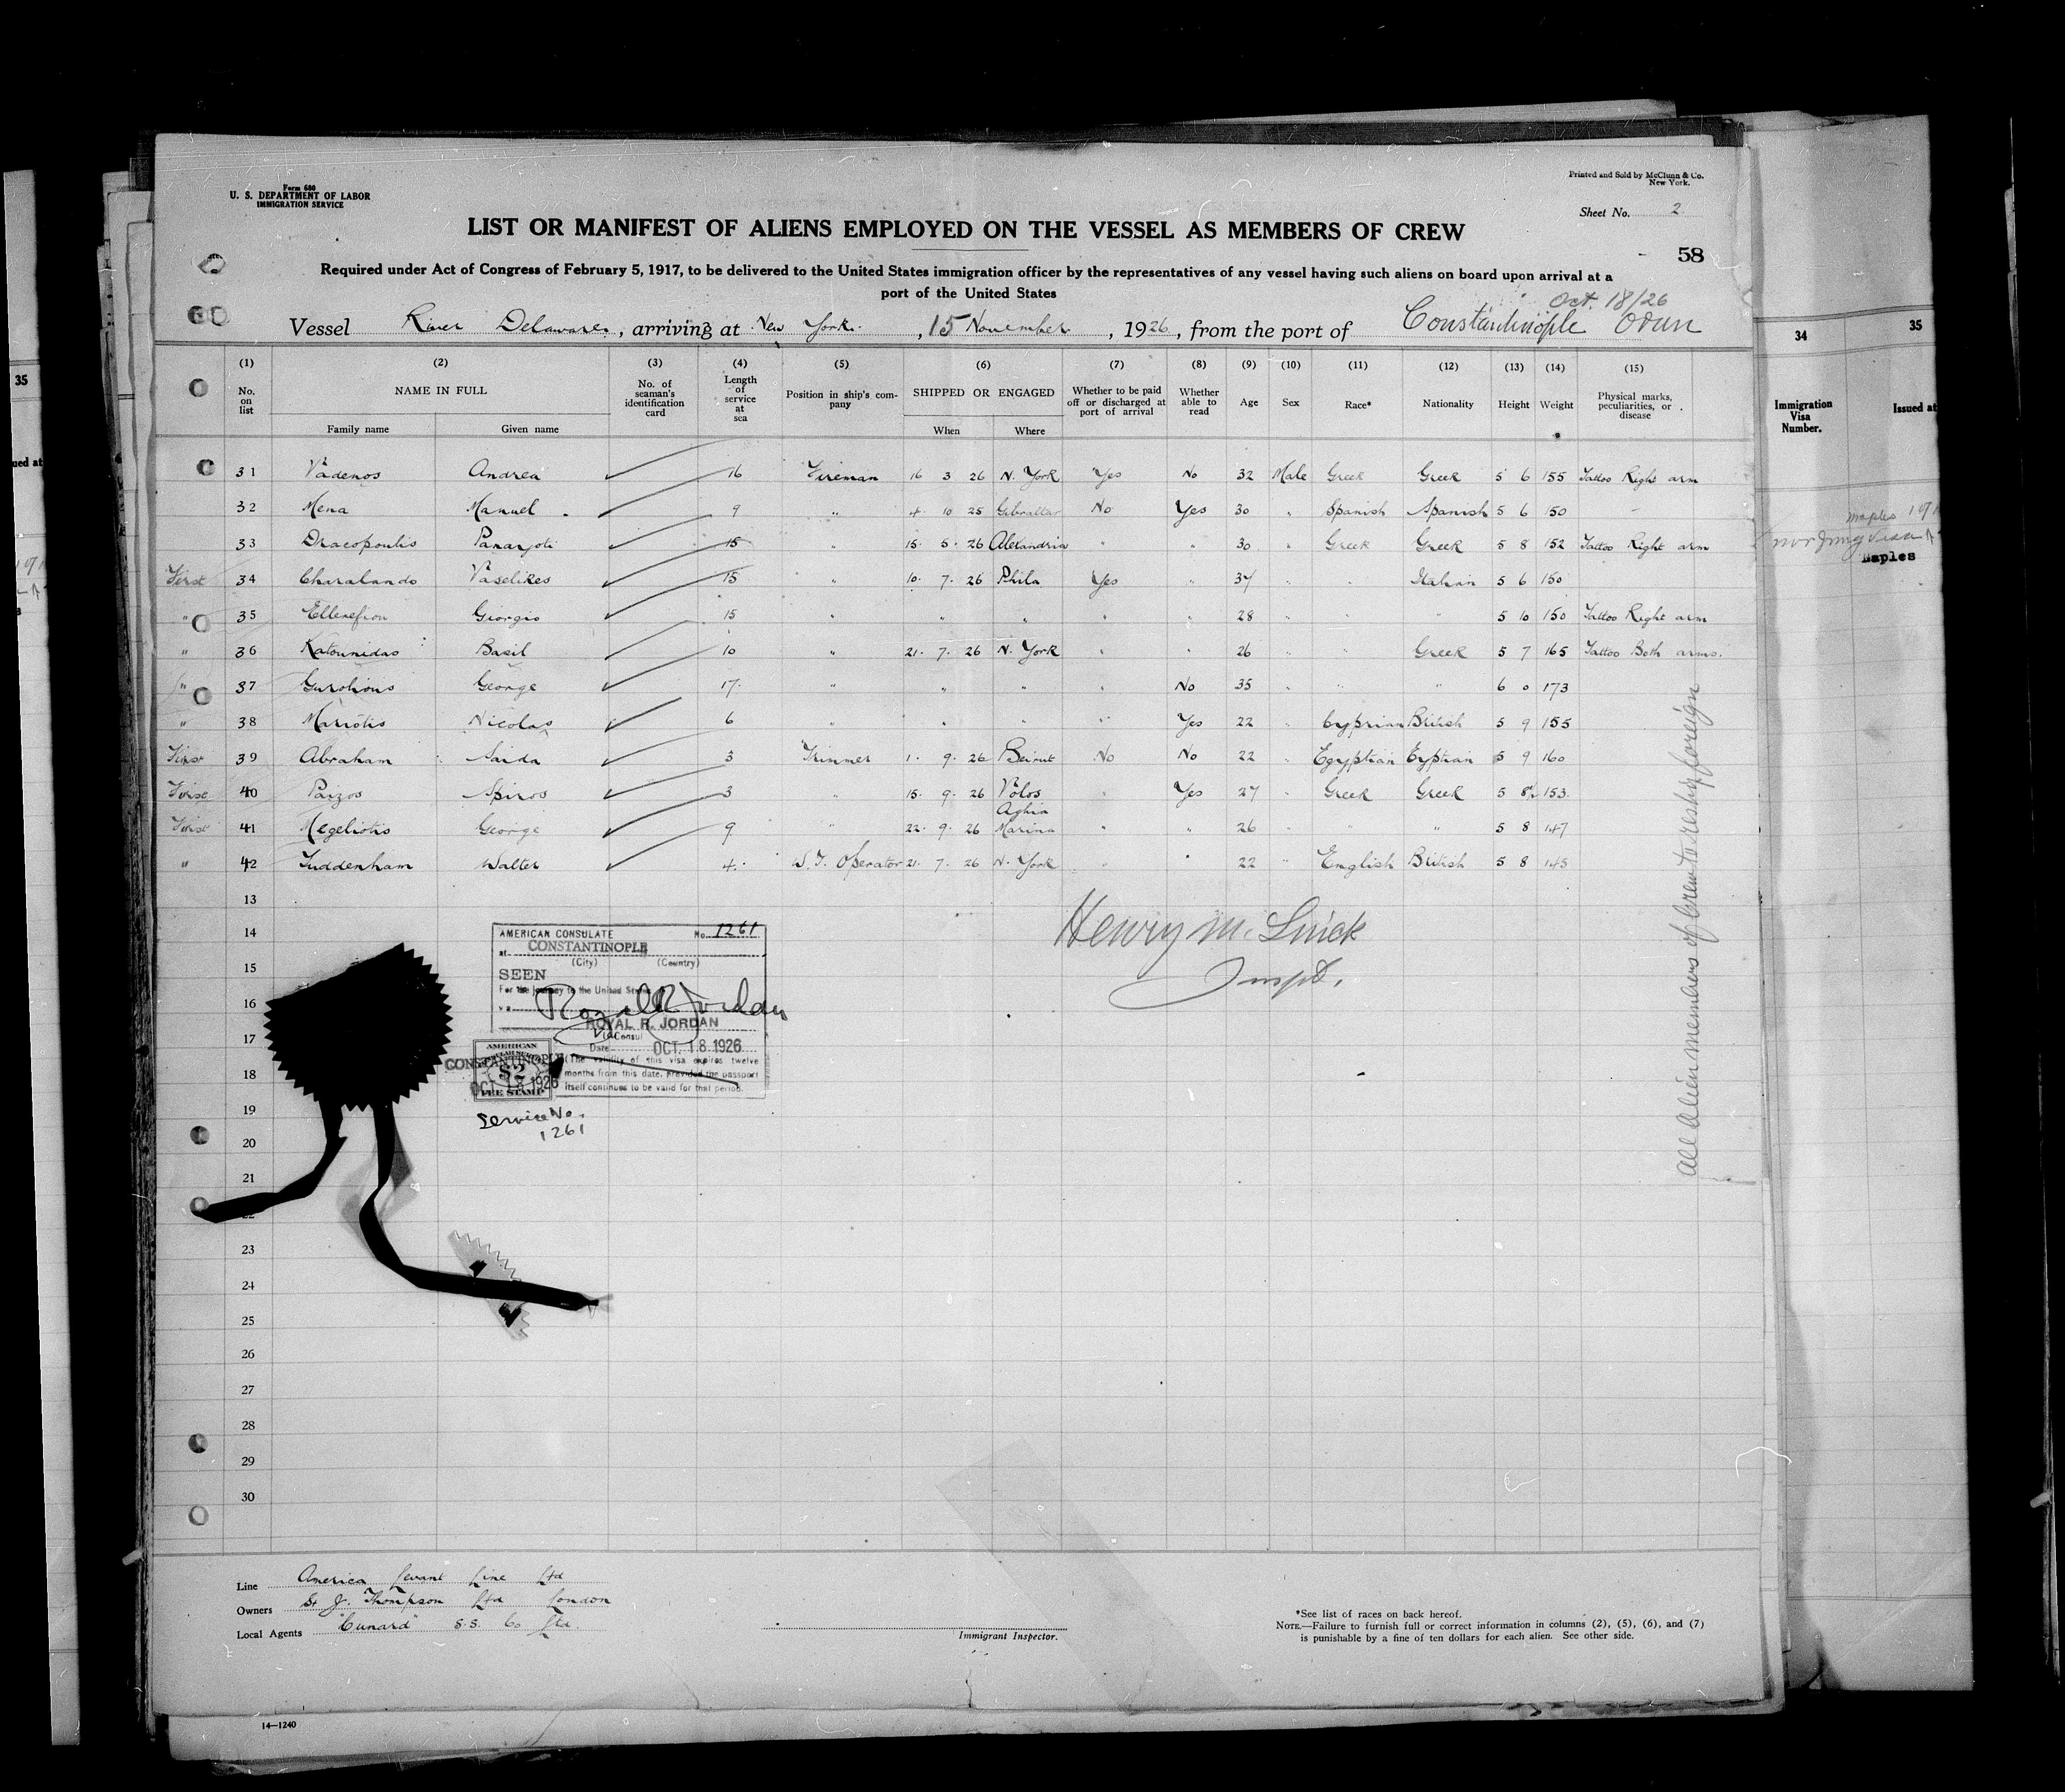 Form 680
U. S. DEPARTMENT OF LABOR
IMMIGRATION SERVICE
Printed and Sold by McClunn & Co.
New York.
Sheet No. 2
LIST OR MANIFEST OF ALIENS EMPLOYED ON THE VESSEL AS MEMBERS OF CREW
58
Required under Act of Congress of February 5, 1917, to be delivered to the United States immigration officer by the representatives of any vessel having such aliens on board upon arrival at a
port of the United States
Oct. 18/26
Vessel River Delaware, arriving at New York, 15 November, 1926, from the port of Constantinople
(1) (2) (3) (4) (5) (6) (7) (8) (9) (10) (11) (12) (13) (14) (15)
No. on list NAME IN FULL No. of seaman's identification card Length of service at sea Position in ship's company SHIPPED OR ENGAGED Whether to be paid off or discharged at port of arrival Whether able to read Age Sex Race* Nationality Height Weight Physical marks, peculiarities, or disease
Family name Given name When Where
31 Vadenos Andrea 16 Fireman 16 3 26 N. York Yes No 32 Male Greek Greek 5 6 155 Tattoo Right arm
32 Mena Manuel 9 " 4 10 25 Gibraltar No Yes 30 " Spanish Spanish 5 6 150 -
33 Dracopoulis Panaryoti 15 " 15 5 26 Alexandria " " 30 " Greek Greek 5 8 152 Tattoo Right arm
First 34 Charalando Vaselikes 15 " 10 7 26 Phila Yes " 37 " " Italian 5 6 150
" 35 Giorgio 15 " " " " " 28 " " " 5 10 150 Tattoo Right arm
" 36 Katounidas Basil 10 " 21 7 26 N. York " " 26 " " Greek 5 7 165 Tattoo Both arms.
" 37 George 17 " " " " No 35 " " " 6 0 173
" 38 Mariotis Nicolas 6 " " " " Yes 22 " Cyprian British 5 9 155
First 39 Abraham Saida 3 Trimmer 1 9 26 Beirut No No 22 " Egyptian Eyptian 5 9 160
First 40 Paizos Spiros 3 " 15 9 26 Volos " Yes 27 " Greek Greek 5 8½ 153
First 41 Megeliotis George 9 " 22 9 26 Aghia Marina " " 26 " " " 5 8 147
" 42 Tuddenham Walter 4 W.T. Operator 21 7 26 N. York " " 22 " English British 5 8 145
13
14
15
16
17
18
19
20
21
22
23
24
25
26
27
28
29
30
Henry M.
Inspt.
AMERICAN CONSULATE No. 1261
at CONSTANTINOPLE
(City) (Country)
SEEN
For the journey to the United States
Royal R. Jordan
ROYAL R. JORDAN
Vice Consul
Date OCT. 18 1926
(The validity of this visa expires twelve
months from this date, provided the passport
itself continues to be valid for that period.
AMERICAN
CONSTANTINOPLE
$2
OCT 18 1926
FEE STAMP
Service No.
1261
all alien members of crew to reship foreign
Line America Levant Line Ltd
Owners St J. Thompson Ltd London
Local Agents "Cunard" S.S. Co Ltd.
Immigrant Inspector.
*See list of races on back hereof.
NOTE.—Failure to furnish full or correct information in columns (2), (5), (6), and (7)
is punishable by a fine of ten dollars for each alien. See other side.
14—1240
34
35
Immigration
Visa
Number.
Issued at
Naples
35
ued at